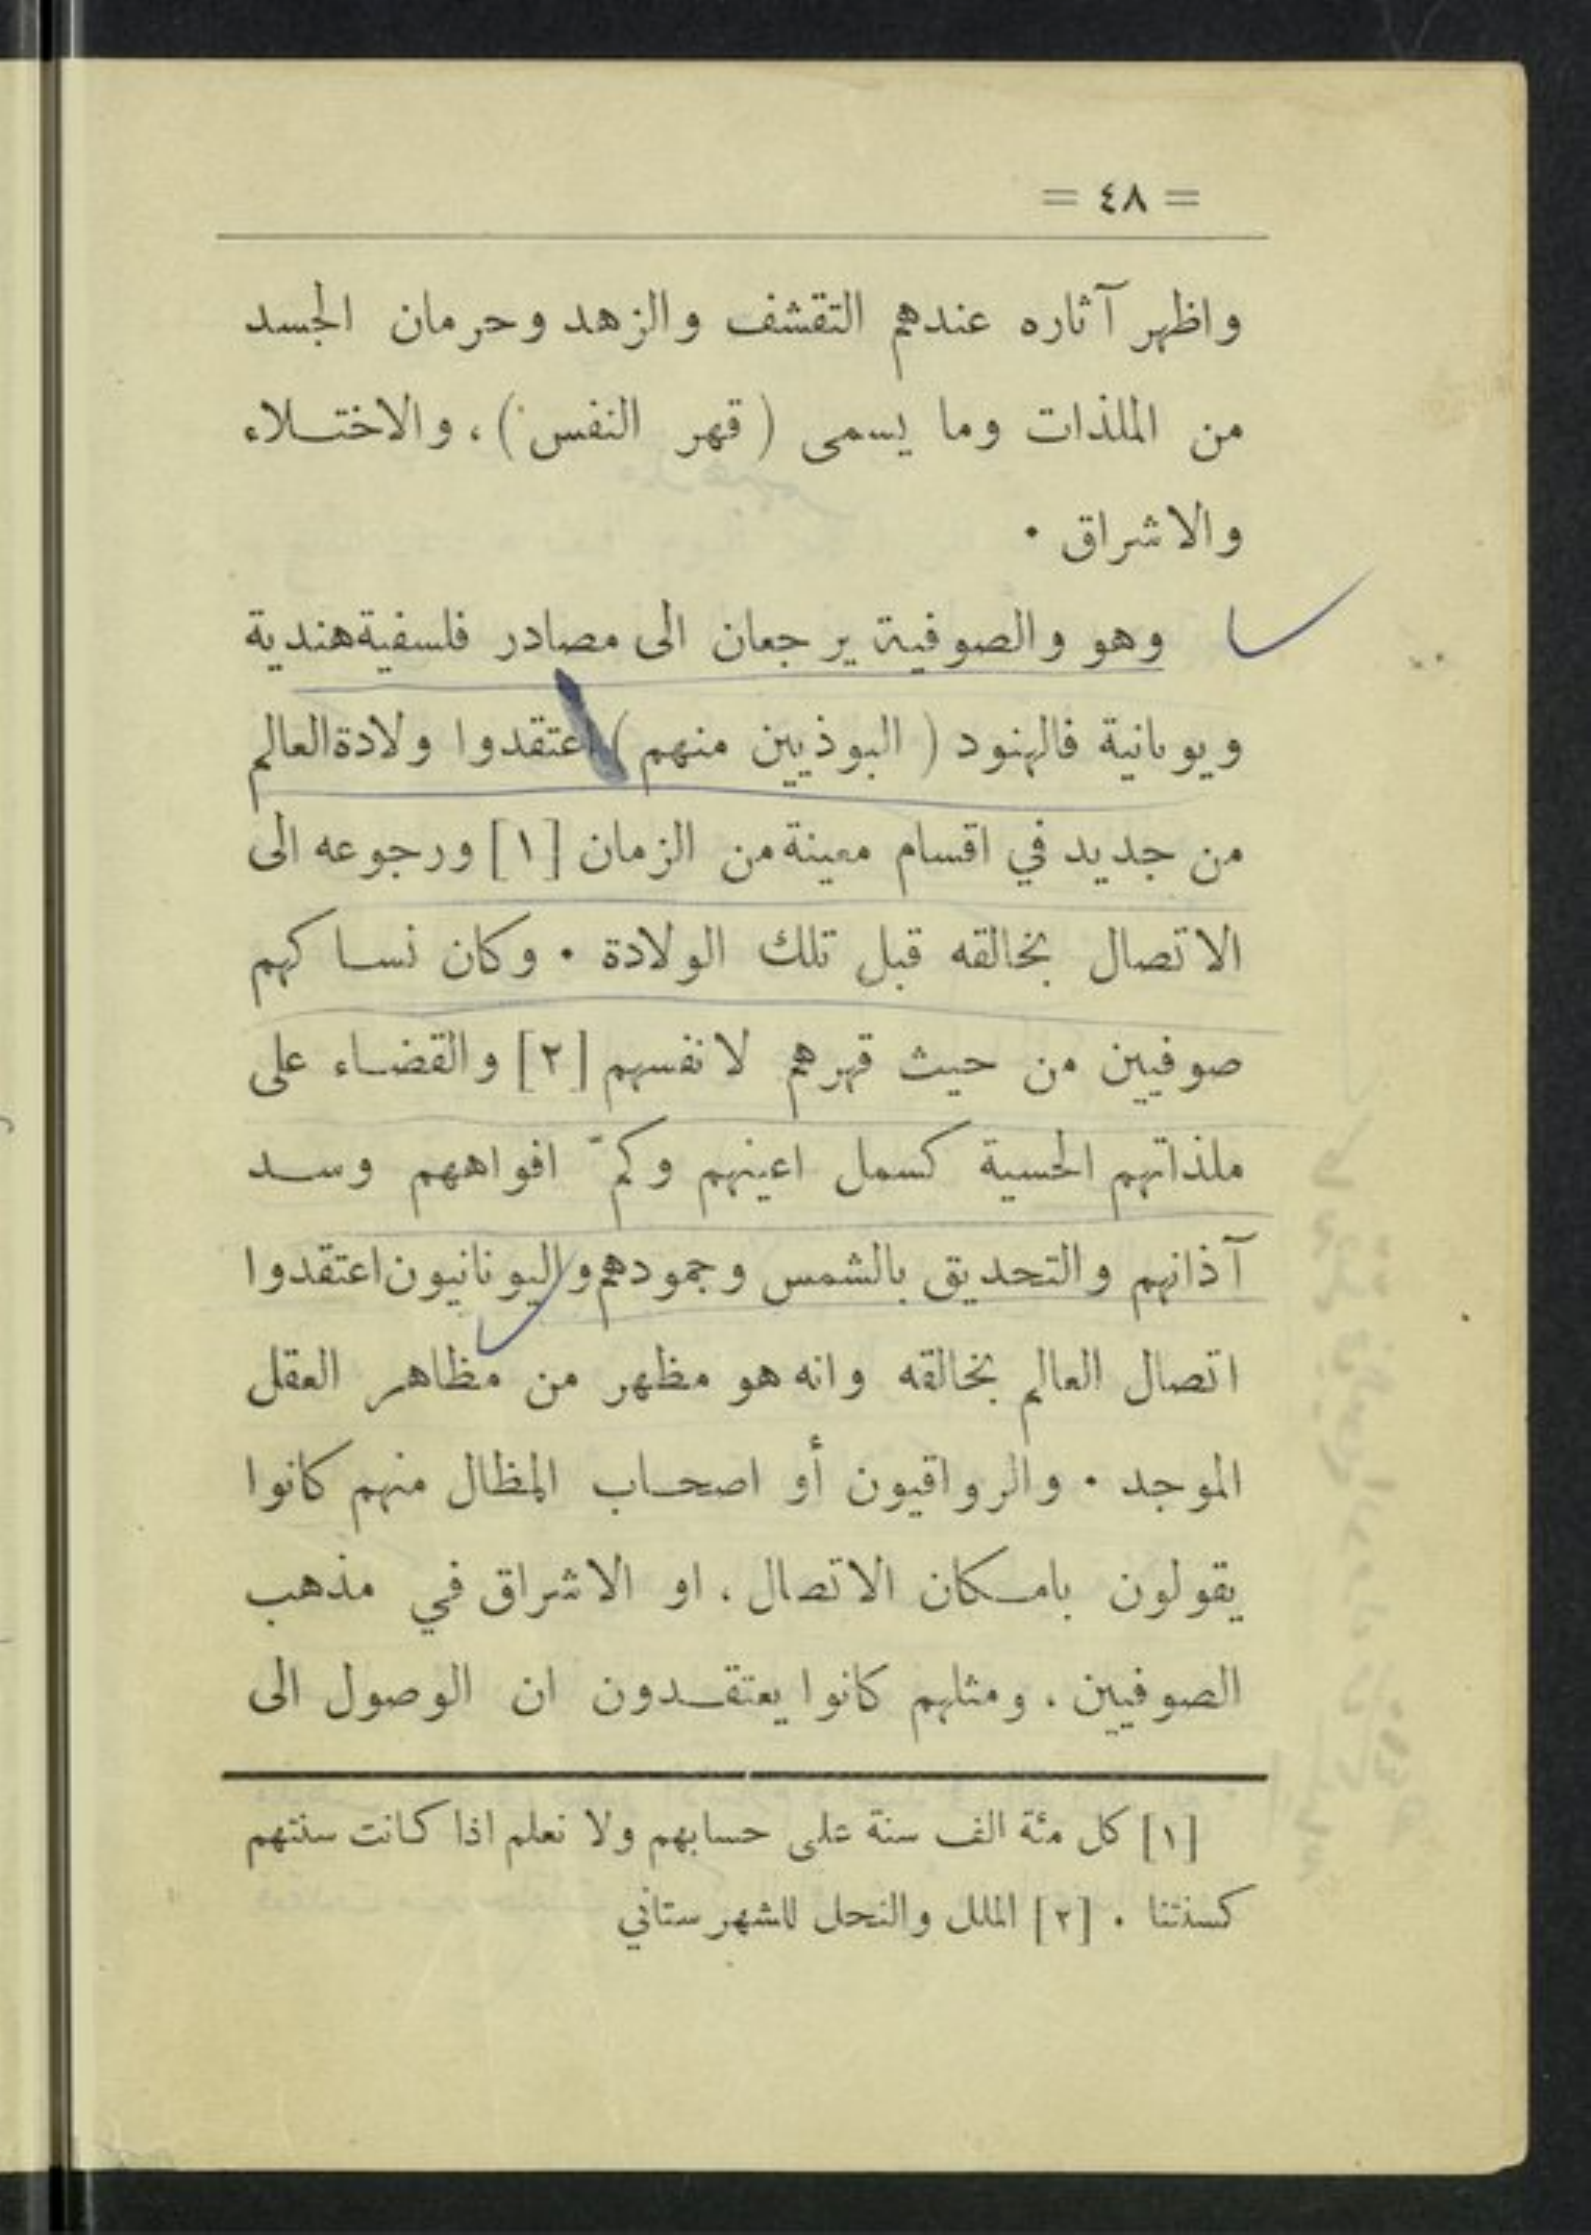 = ٤٨ =
واظهر آثاره عندهم التقشف والزهد وحرمان الجسد
من الملذات وما يسمى ( قهر النفس ) ، والاختلاء
والاشراق .
وهو والصوفية يرجعان الى مصادر فلسفية هندية
ويونانية فالهنود ( البوذيين منهم ) اعتقدوا ولادة العالم
من جديد في اقسام معينة من الزمان [١] ورجوعه الى
الاتصال بخالقه قبل تلك الولادة . وكان نساكهم
صوفيين من حيث قهرهم لانفسهم [٢] والقضاء على
ملذاتهم الحسية كسمل اعينهم وكمّ افواههم وسد
آذانهم والتحديق بالشمس وجمودهم واليونانيون اعتقدوا
اتصال العالم بخالقه وانه هو مظهر من مظاهر العقل
الموجد . والرواقيون أو اصحاب المظال منهم كانوا
يقولون بامكان الاتصال ، او الاشراق في مذهب
الصوفيين ، ومثلهم كانوا يعتقدون ان الوصول الى
[١] كل مئة الف سنة على حسابهم ولا نعلم اذا كانت سنتهم
كسنتنا . [٢] الملل والنحل للشهرستاني